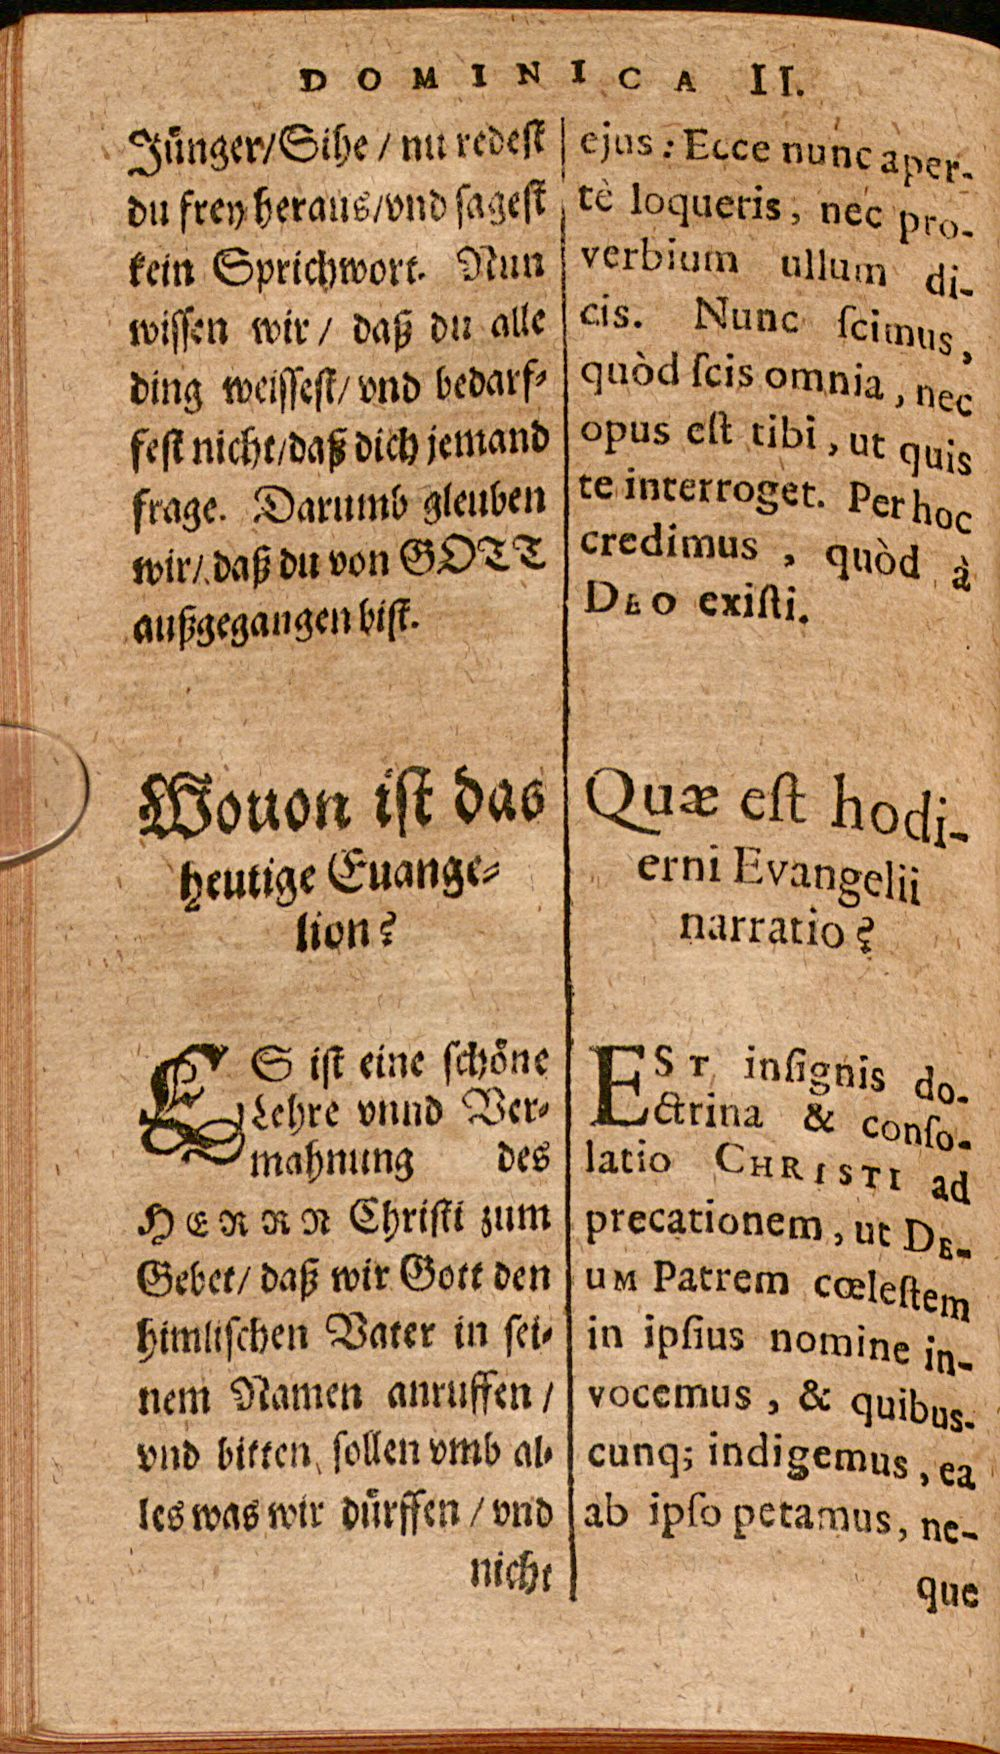 DOMINICA II.
Jünger/Sihe / nu redest
du frey heraus/vnd sagest
kein Sprichwort. Nun
wissen wir / daß du alle
ding weissest/ vnd bedarf-
fest nicht/daß dich jemand
frage. Darumb gleuben
wir/ daß du von GOTT
außgegangen bist.
Wouon ist das
heutige Euange-
lion?
ES ist eine schöne
Lehre vnnd Ver-
mahnung des
HERRN Christi zum
Gebet/ daß wir Gott den
himlischen Vater in sei-
nem Namen anruffen /
vnd bitten sollen vmb al-
les was wir dürffen / vnd
nicht
ejus : Ecce nunc aper-
tè loqueris, nec pro-
verbium ullum di-
cis. Nunc ſcimus,
quòd ſcis omnia, nec
opus eſt tibi, ut quis
te interroget. Per hoc
credimus, quòd à
DEO exiſti.
Quæ eſt hodi-
erni Evangelii
narratio?
EST inſignis do-
ctrina & conſo-
latio CHRISTI ad
precationem, ut DE-
UM Patrem cœleſtem
in ipſius nomine in-
vocemus, & quibus-
cunq; indigemus, ea
ab ipſo petamus, ne-
que